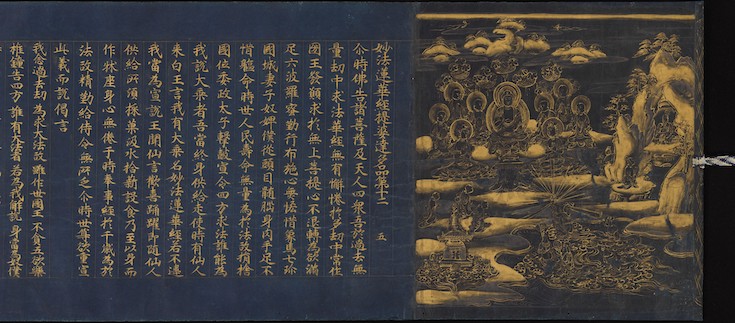 妙法蓮華經提婆達多品第十二 五
尒時佛告諸菩薩及天人四衆吾於過去無
量劫中求法華經無有懈惓於多劫中常作
國王發願求於無上菩提心不退轉為欲滿
足六波羅蜜勤行布施心無悋惜象馬七珍
國城妻子奴婢僕從頭目髓腦身肉手足不
惜軀命時世人民壽命無量為於法故捐捨
國位委政太子擊鼓宣令四方求法誰能為
我說大乘者吾當終身供給走使時有仙人
來白王言我有大乘名妙法蓮華經若不違
我當為宣說王聞仙言歡喜踊躍即隨仙人
供給所須採菓汲水拾薪設食乃至以身而
作牀座身心無惓于時奉事經於千歲為於
法故精勤給侍令無所乏尒時世尊欲重宣
此義而說偈言
我念過去劫 為求大法故 雖作世國王 不貪五欲樂
椎鍾告四方 誰有大法者 若為我解說 身當為奴僕